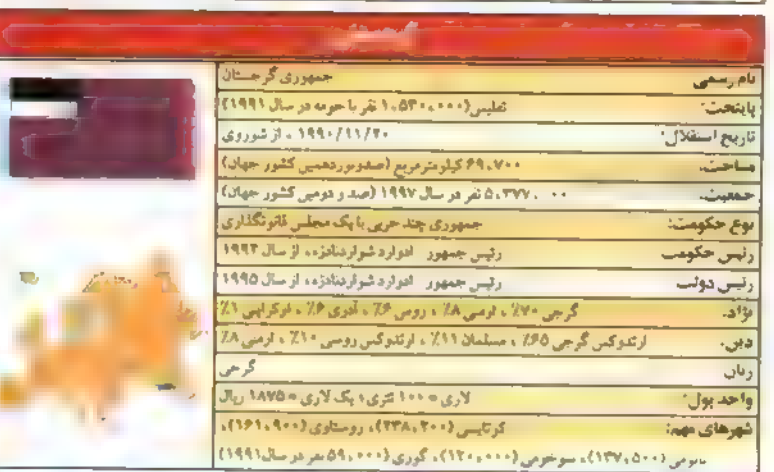 نام رسمی جمهوری گرجستان
پایتخت: تفلیس (۱،۵۳۰،۰۰۰ نفر با حومه در سال ۱۹۹۱)
تاریخ استقلال: ۱۹۹۰/۱۱/۲۰ ، از شوروی
مساحت: ۶۹،۷۰۰ کیلومترمربع (صدونوزدهمین کشور جهان)
جمعیت: ۵،۳۷۷،۰۰۰ نفر در سال ۱۹۹۷ (صد و دومین کشور جهان)
نوع حکومت: جمهوری چند حزبی با یک مجلس قانونگذاری
رئیس حکومت رئیس جمهور ادوارد شواردنادزه، از سال ۱۹۹۲
رئیس دولت رئیس جمهور ادوارد شواردنادزه، از سال ۱۹۹۵
نژاد: گرجی ۷۰٪ ، ارمنی ۸٪ ، روسی ۶٪ ، آذری ۶٪ ، اوکراینی ۱٪
دین: ارتدوکس گرجی ۶۵٪ ، مسلمان ۱۱٪ ، ارتدوکس روسی ۱۰٪ ، ارمنی ۸٪
زبان گرجی
واحد پول: لاری = ۱۰۰ تتری؛ یک لاری = ۱۸۷۵ ریال
شهرهای مهم: کوتایسی (۲۳۸،۲۰۰)، روستاوی (۱۶۱،۹۰۰)،
باتومی (۱۳۷،۵۰۰)، سوخومی (۱۲۰،۰۰۰)، گوری (۵۹،۰۰۰ نفر در سال ۱۹۹۱)